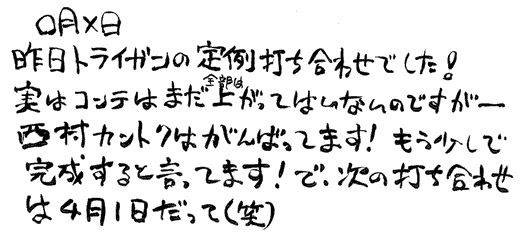 〇月×日
昨日トライガンの定例打ち合わせでした!
実はコンテはまだ全部は上がってはいないのですがー
西村カントクはがんばってます! もう少しで
完成すると言ってます! で、次の打ち合わせ
は4月1日だって(笑)